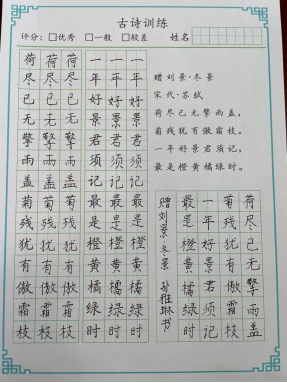 古诗训练
评分：□优秀 □一般 □较差 姓名
荷尽已无擎雨盖菊残犹有傲霜枝
荷尽已无擎雨盖菊残犹有傲霜枝
荷尽已无擎雨盖菊残犹有傲霜枝
一年好景君须记最是橙黄橘绿时
一年好景君须记最是橙黄橘绿时
一年好景君须记最是橙黄橘绿时
赠刘景·冬景
宋代·苏轼
荷尽已无擎雨盖，
菊残犹有傲霜枝。
一年好景君须记，
最是橙黄橘绿时。
荷尽已无擎雨盖
菊残犹有傲霜枝
一年好景君须记
最是橙黄橘绿时
赠刘景·冬景 雅琳书